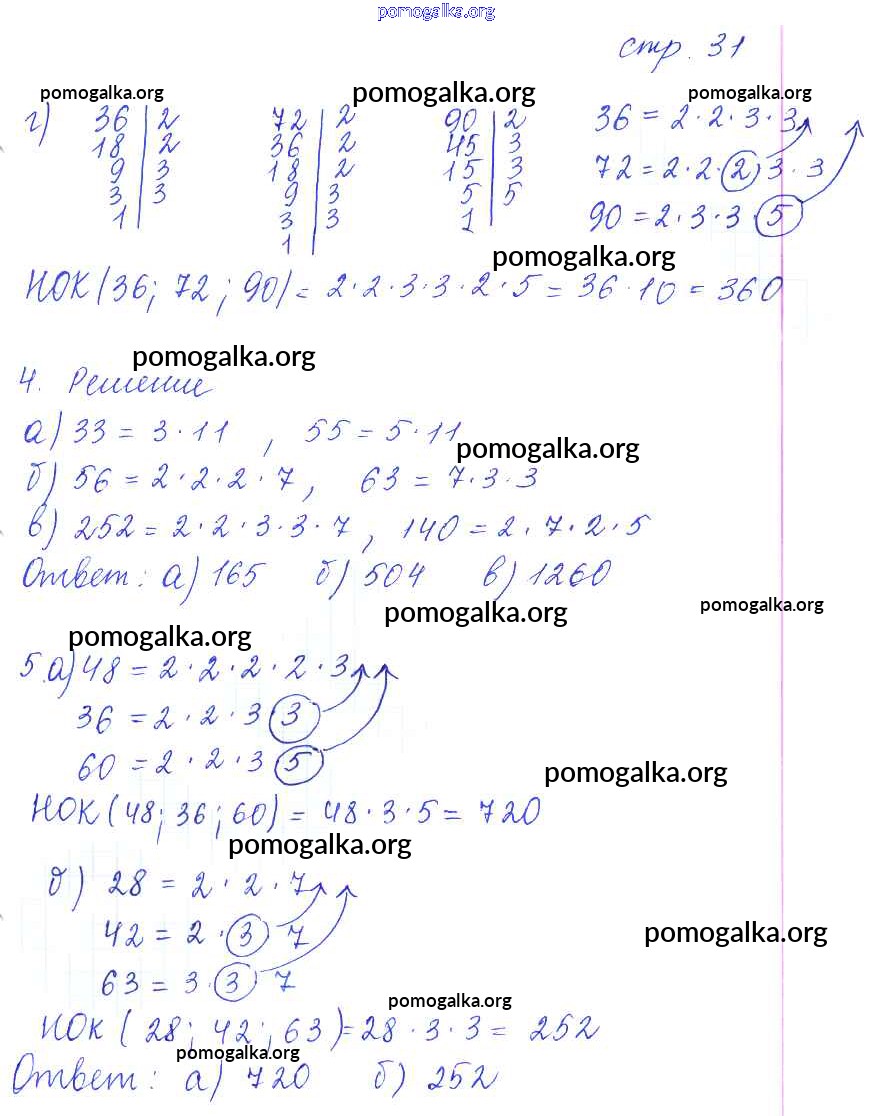 pomogalka.org
стр. 31
pomogalka.org pomogalka.org pomogalka.org
г) 36 | 2 72 | 2 90 | 2 36 = 2 · 2 · 3 · 3
18 | 2 36 | 2 45 | 3
9 | 3 18 | 2 15 | 3 72 = 2 · 2 · 2, 3 · 3
3 | 3 9 | 3 5 | 5
1 | 3 | 3 1 | 90 = 2 · 3 · 3 5
1 |
pomogalka.org
НОК (36; 72; 90) = 2 · 2 · 3 · 3 · 2 · 5 = 36 · 10 = 360
pomogalka.org
4. Решение
а) 33 = 3 · 11, 55 = 5 · 11
pomogalka.org
б) 56 = 2 · 2 · 2 · 7, 63 = 7 · 3 · 3
в) 252 = 2 · 2 · 3 · 3 · 7, 140 = 2 · 7 · 2 · 5
Ответ: а) 165 б) 504 в) 1260
pomogalka.org pomogalka.org
pomogalka.org
5. а) 48 = 2 · 2 · 2 · 2 · 3
36 = 2 · 2 · 3 3
60 = 2 · 2 · 3 5
pomogalka.org
НОК (48; 36; 60) = 48 · 3 · 5 = 720
pomogalka.org
б) 28 = 2 · 2 · 7
42 = 2 · 3 7
pomogalka.org
63 = 3 · 3 7
pomogalka.org
НОК (28; 42; 63) = 28 · 3 · 3 = 252
pomogalka.org
Ответ: а) 720 б) 252